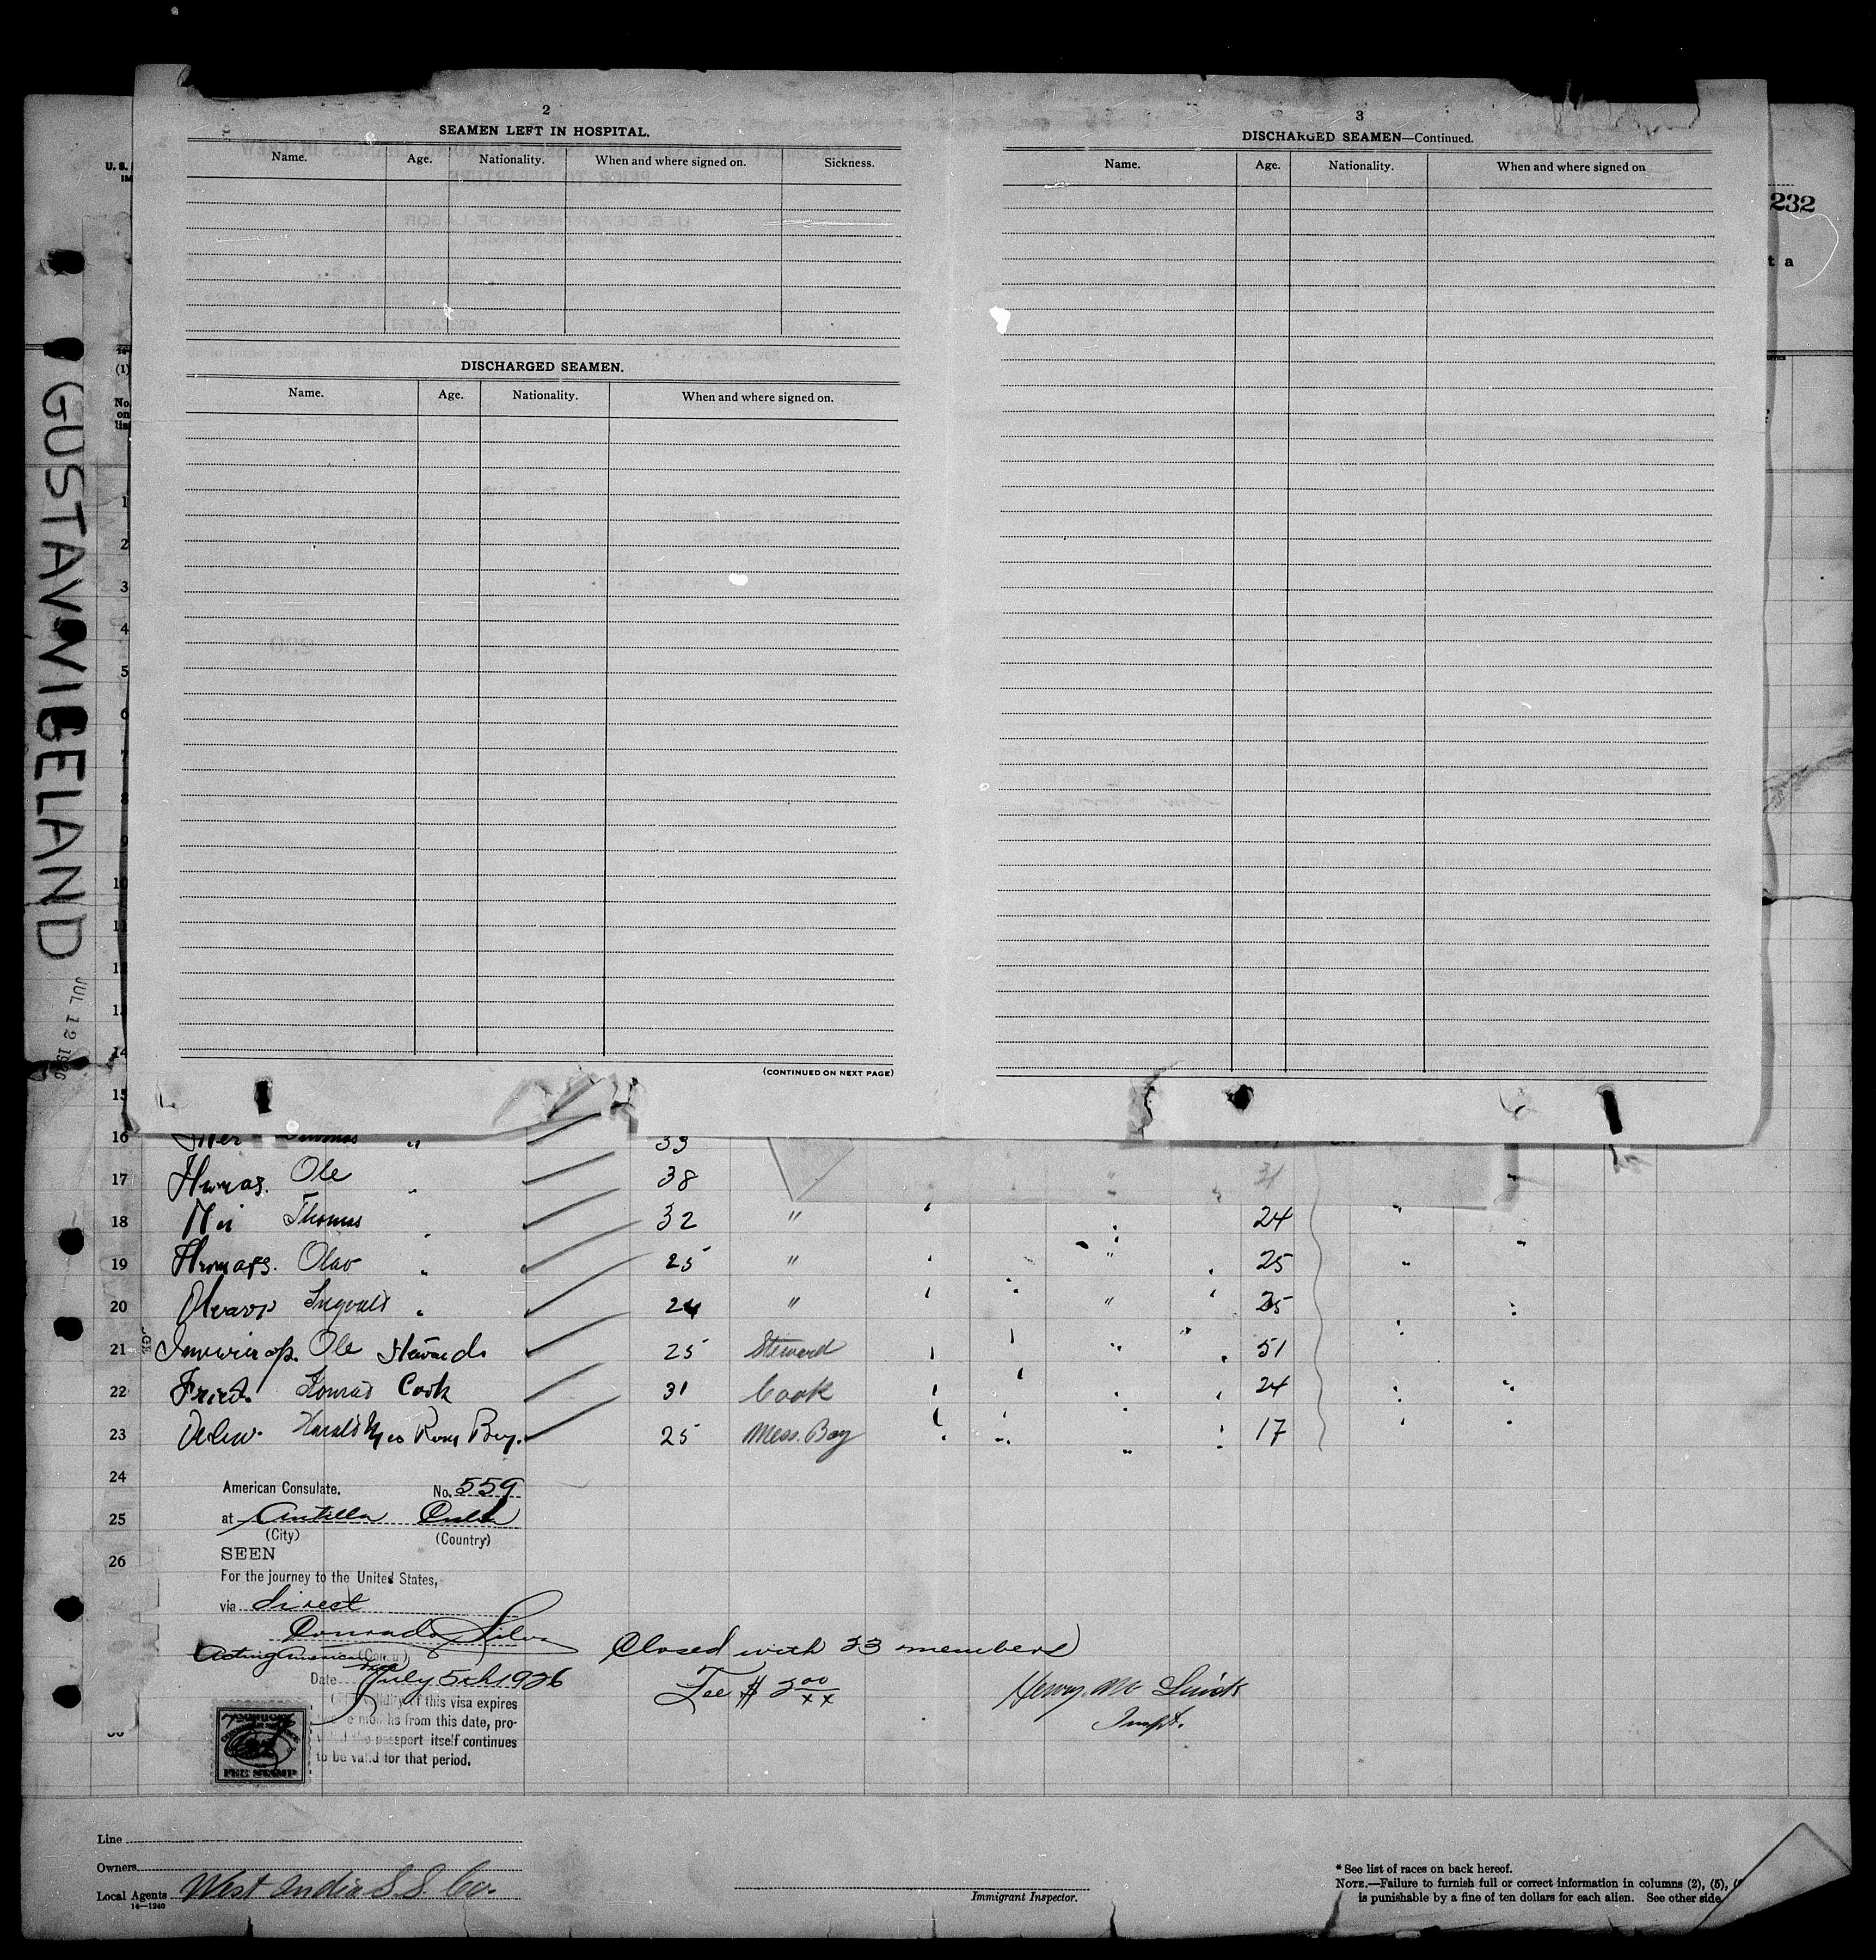 2
SEAMEN LEFT IN HOSPITAL.
Name. Age. Nationality. When and where signed on. Sickness.
DISCHARGED SEAMEN.
Name. Age. Nationality. When and where signed on.
(CONTINUED ON NEXT PAGE)
3
DISCHARGED SEAMEN—Continued.
Name. Age. Nationality. When and where signed on
232
t a
U. S.
(1)
No.
on
GUSTAV VIGELAND
JUL 12 1926
1
2
3
4
5
6
7
8
9
10
11
12
13
14
15
16 Thomas " 33
17 Ole 38 " 31
18 Thomas 32 " 24
19 Olav 25 " 25
20 Ingvald 24 " 25
21 Ole Steward 25 Steward 51
22 Konrad Cook 31 Cook 24
23 Harald Mess Room Boy. 25 Mess. Boy 17
24
25
26
American Consulate. No. 559
at Antilla Cuba
(City) (Country)
SEEN
For the journey to the United States,
via direct
Conrado Silva
Acting American
Date July 5th 1926
validity of this visa expires
months from this date, pro-
the passport itself continues
to be valid for that period.
FEE STAMP
Closed with 23 members
Fee $ 2 00/xx
Henry
Line
Owners
Local Agents West India S.S. Co.
14—1240
Immigrant Inspector.
* See list of races on back hereof.
NOTE.—Failure to furnish full or correct information in columns (2), (5),
is punishable by a fine of ten dollars for each alien. See other side